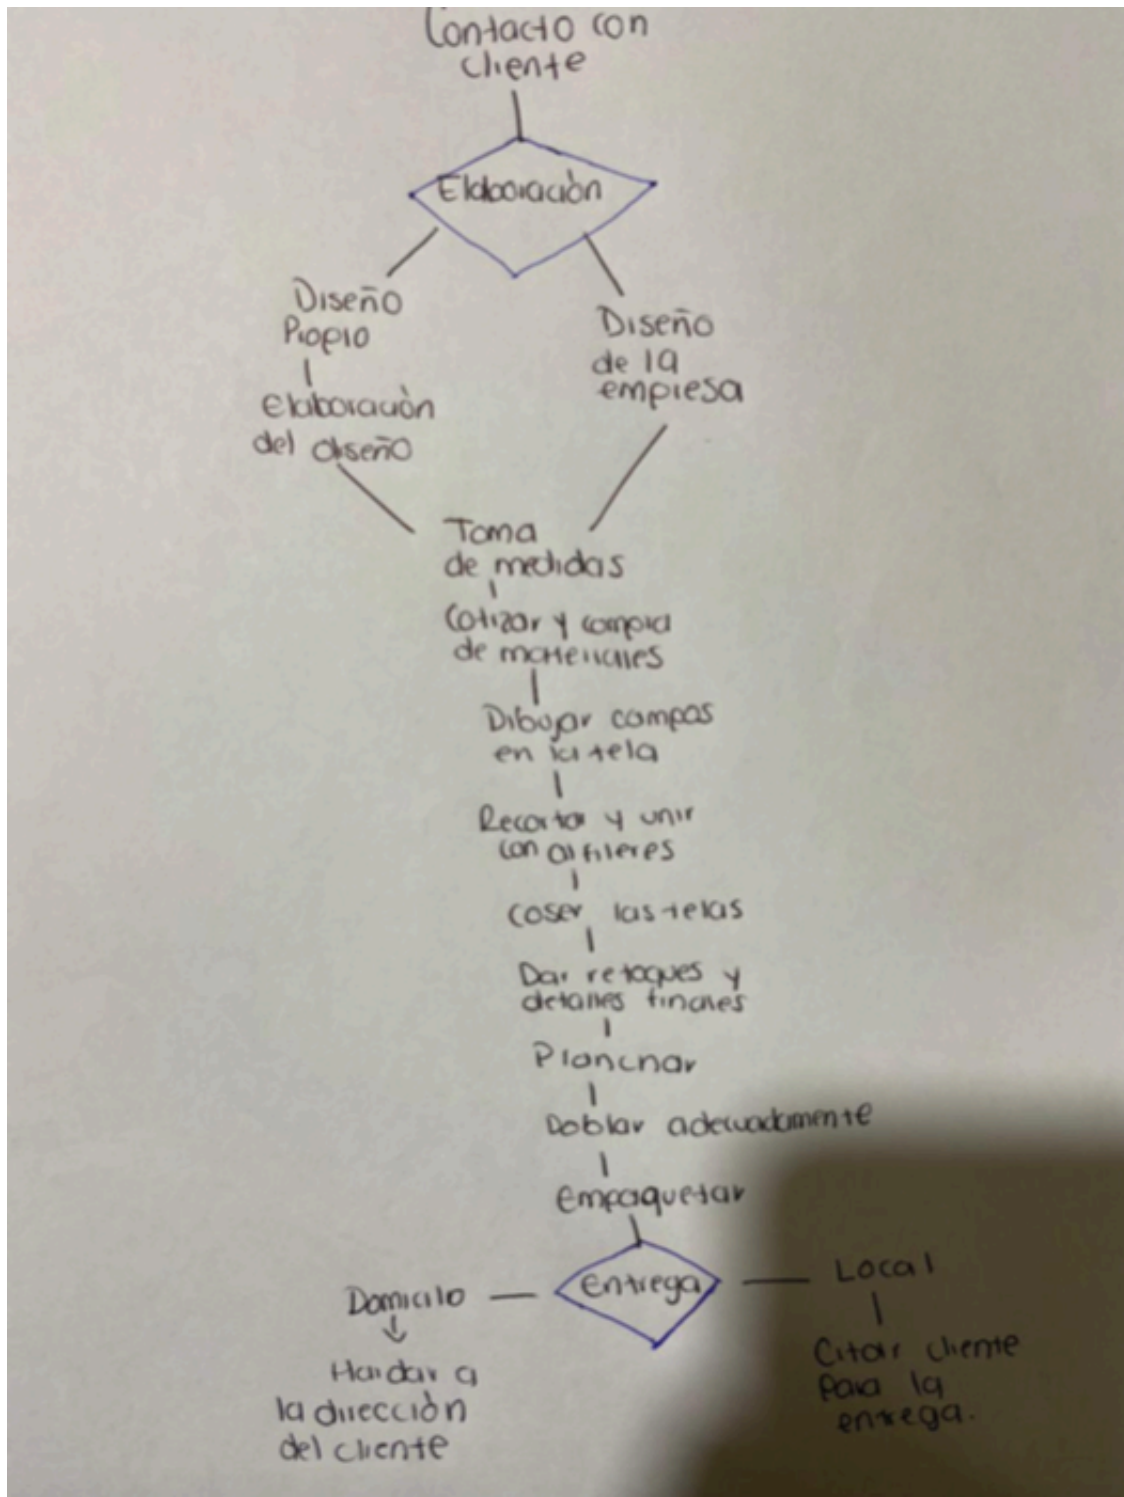 Contacto con
cliente
Elaboración
Diseño
Propio
Diseño
de la
empresa
Elaboración
del diseño
Toma
de medidas
Cotizar y compra
de materiales
Dibujar campos
en la tela
Recortar y unir
con alfileres
coser las telas
Dar retoques y
detalles finales
Planchar
Doblar adecuadamente
Empaquetar
Entrega
Domicilo
Local
a
la dirección
del cliente
Citar cliente
para la
entrega.